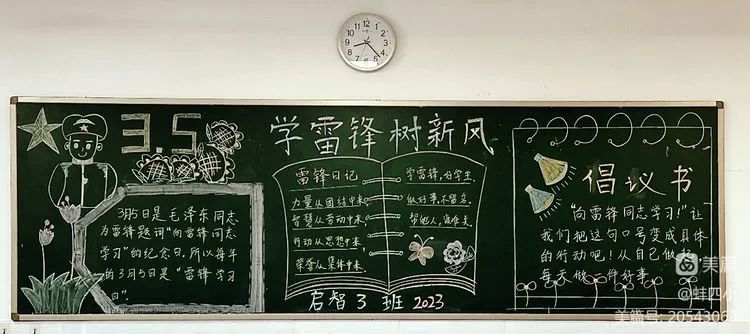 3 5
学雷锋 树新风
3月5日是毛泽东同志
为雷锋题词“向雷锋同志
学习”的纪念日，所以每年
的3月5日是“雷锋学习
日”。
雷锋日记
力量从团结中来，
智慧从劳动中来，
行动从思想中来，
荣誉从集体中来。
学雷锋，好学生
做好事，不留名，
帮他人，
启智3班 2023
倡议书
“向雷锋同志学习！”让
我们把这句口号变成具体
的行动吧！从自己做
每天做一件好事。
美篇
@蚌四小
美篇号: 20543063